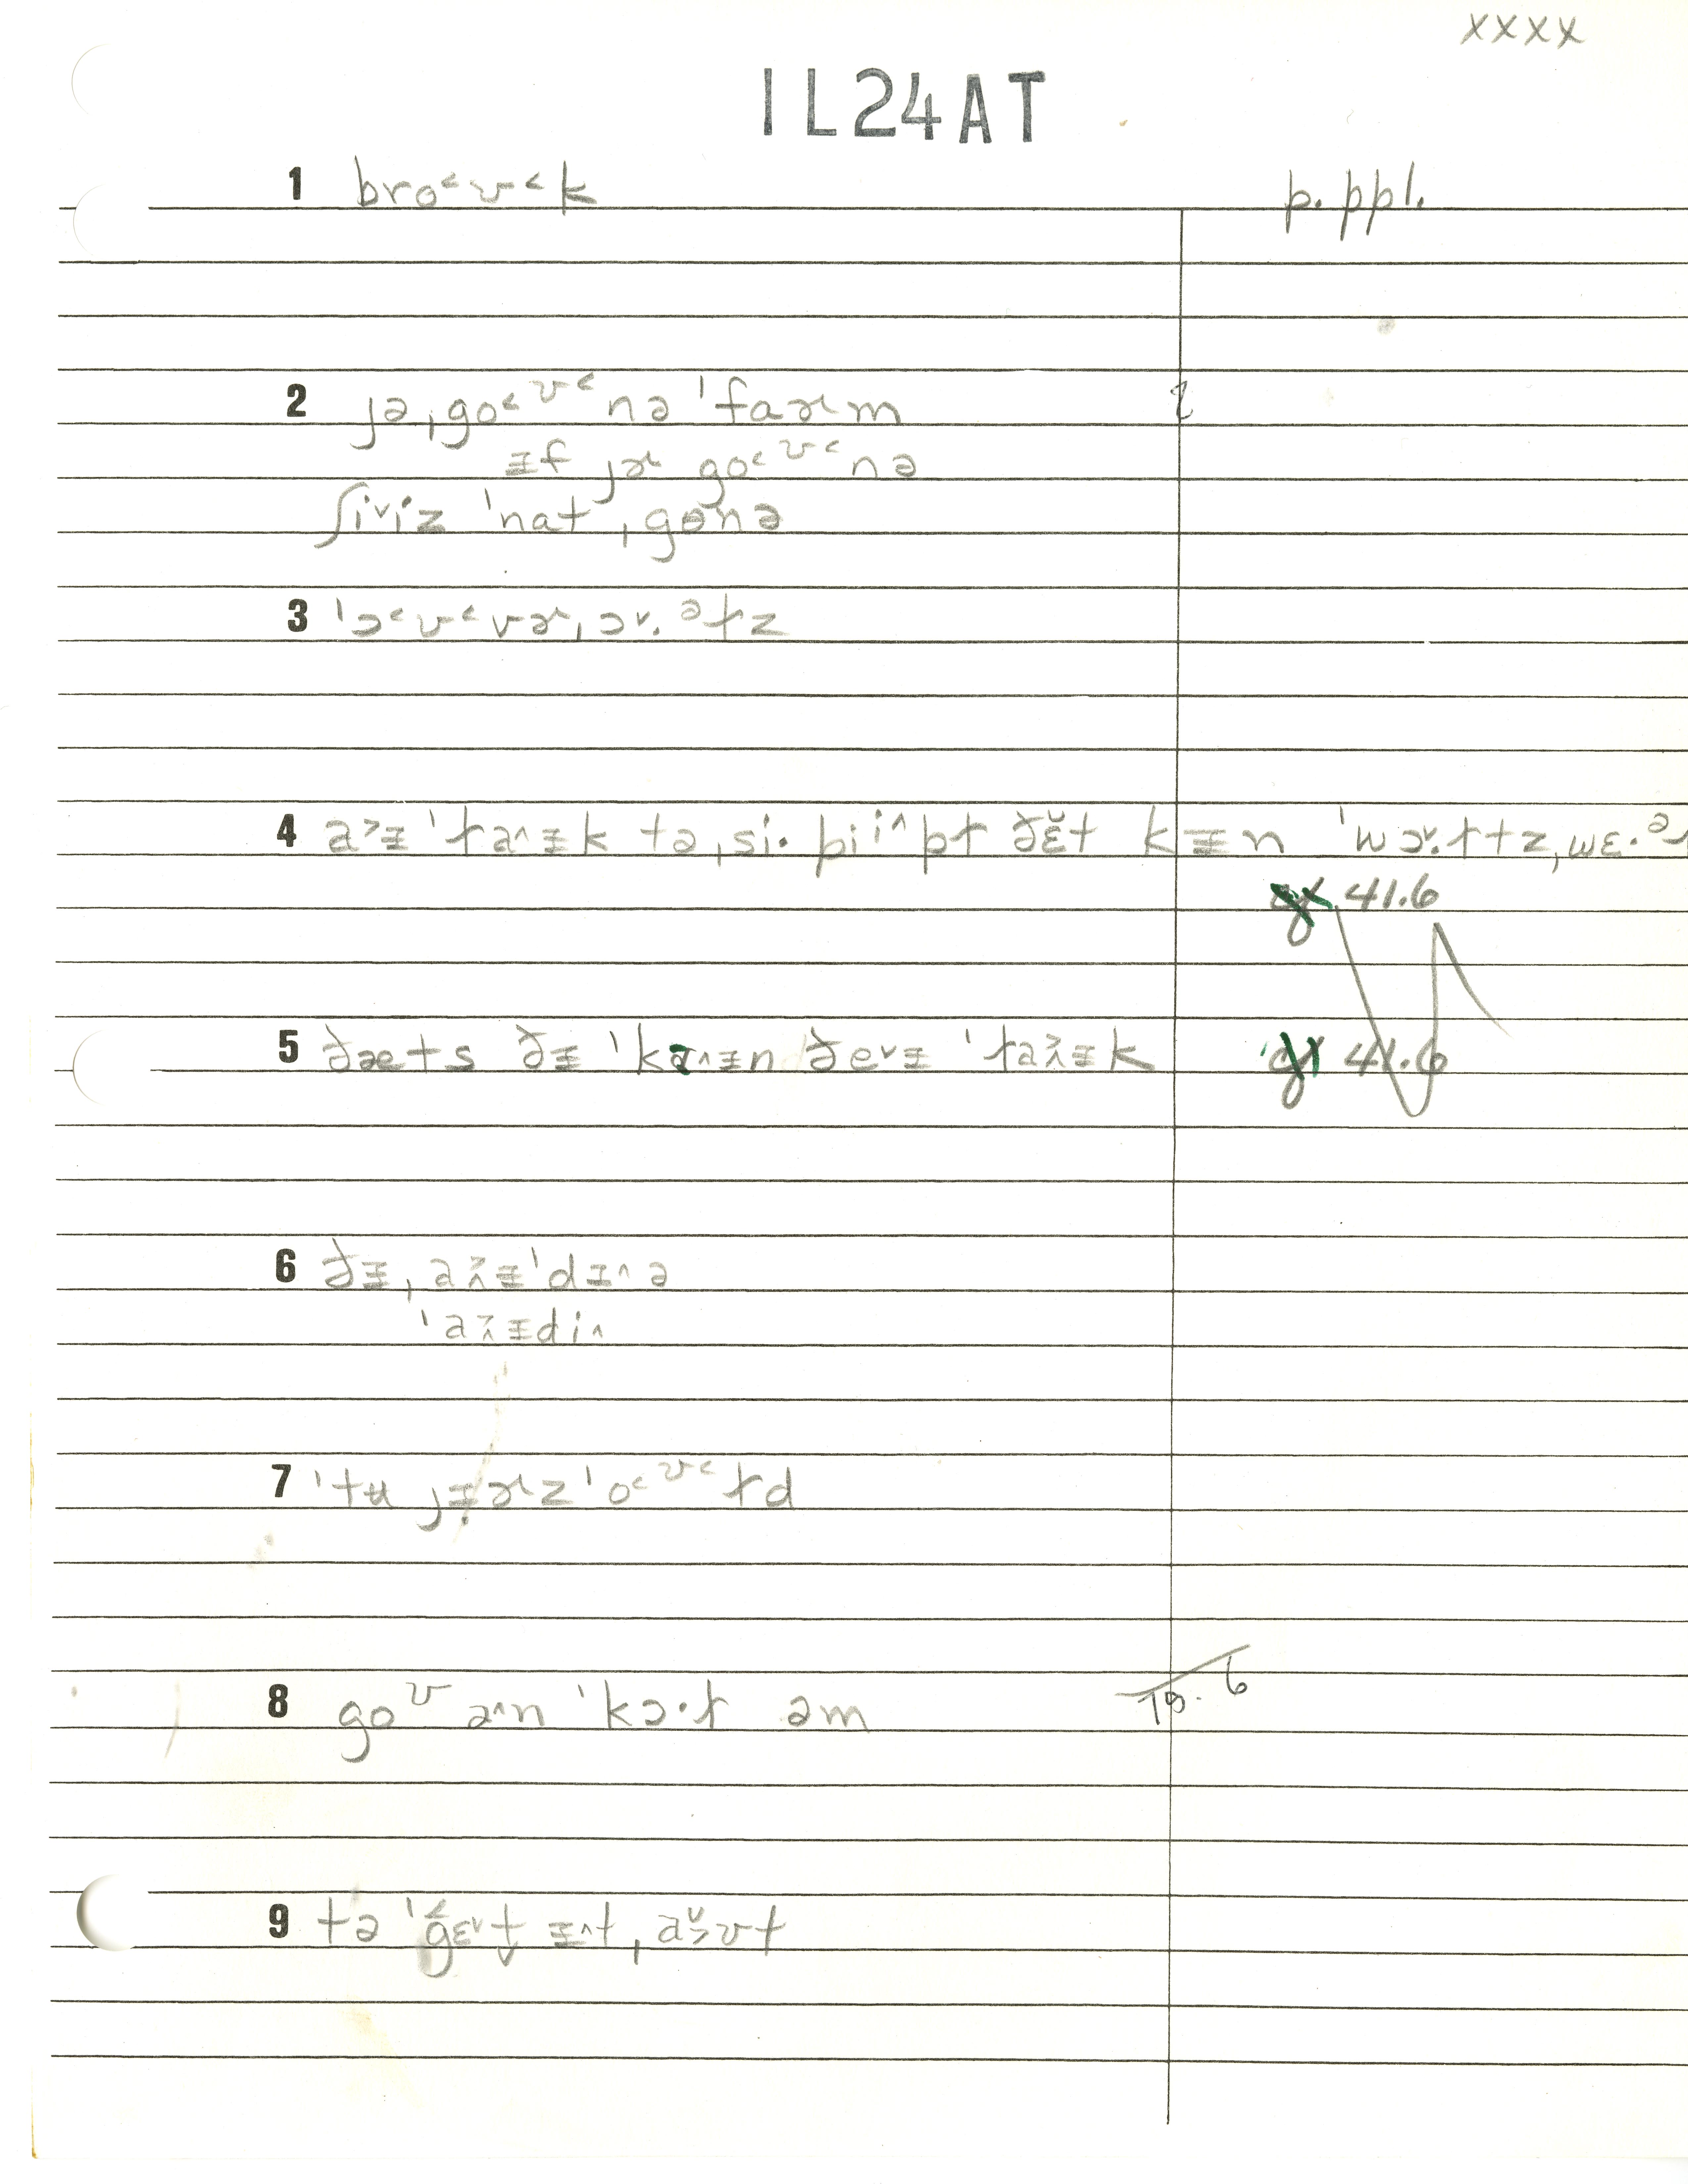 xxxx
1L24AT
1 bro˂ʊ˂k p. ppl.
2 jə ˌgo˂ʊ˂nə ˈfaɚm
ɪf jɚ go˂ʊ˂nə
ʃiˇiz ˈnat ˌgənə
3 ˈɔ˂ʊ˂vɚˌɔˇ·əɫz
4 a˃ɪ ˈɫa^ɪk tə ˌsi· pii^pɫ ðɛ̌t kɪn ˈwɔˇ·ɫtz ˌwɛ·əɫ
41.6
5 ðæts ðɪ ˈka^ɪn ðeˇɪ ˈɫa˃^ɪk 41.6
6 ðɪ ˌa˃^ɪˈdɪ^ə
ˈa˃^ɪdi^
7 ˈtʉ jɪɚz ˈo˂ʊ˂ɫd
8 goʊ ə^n ˈkɔ·ɫ əm 19.6
9 tə ˈgɛˇt ɪ^t ˌaˇ˃ʊt